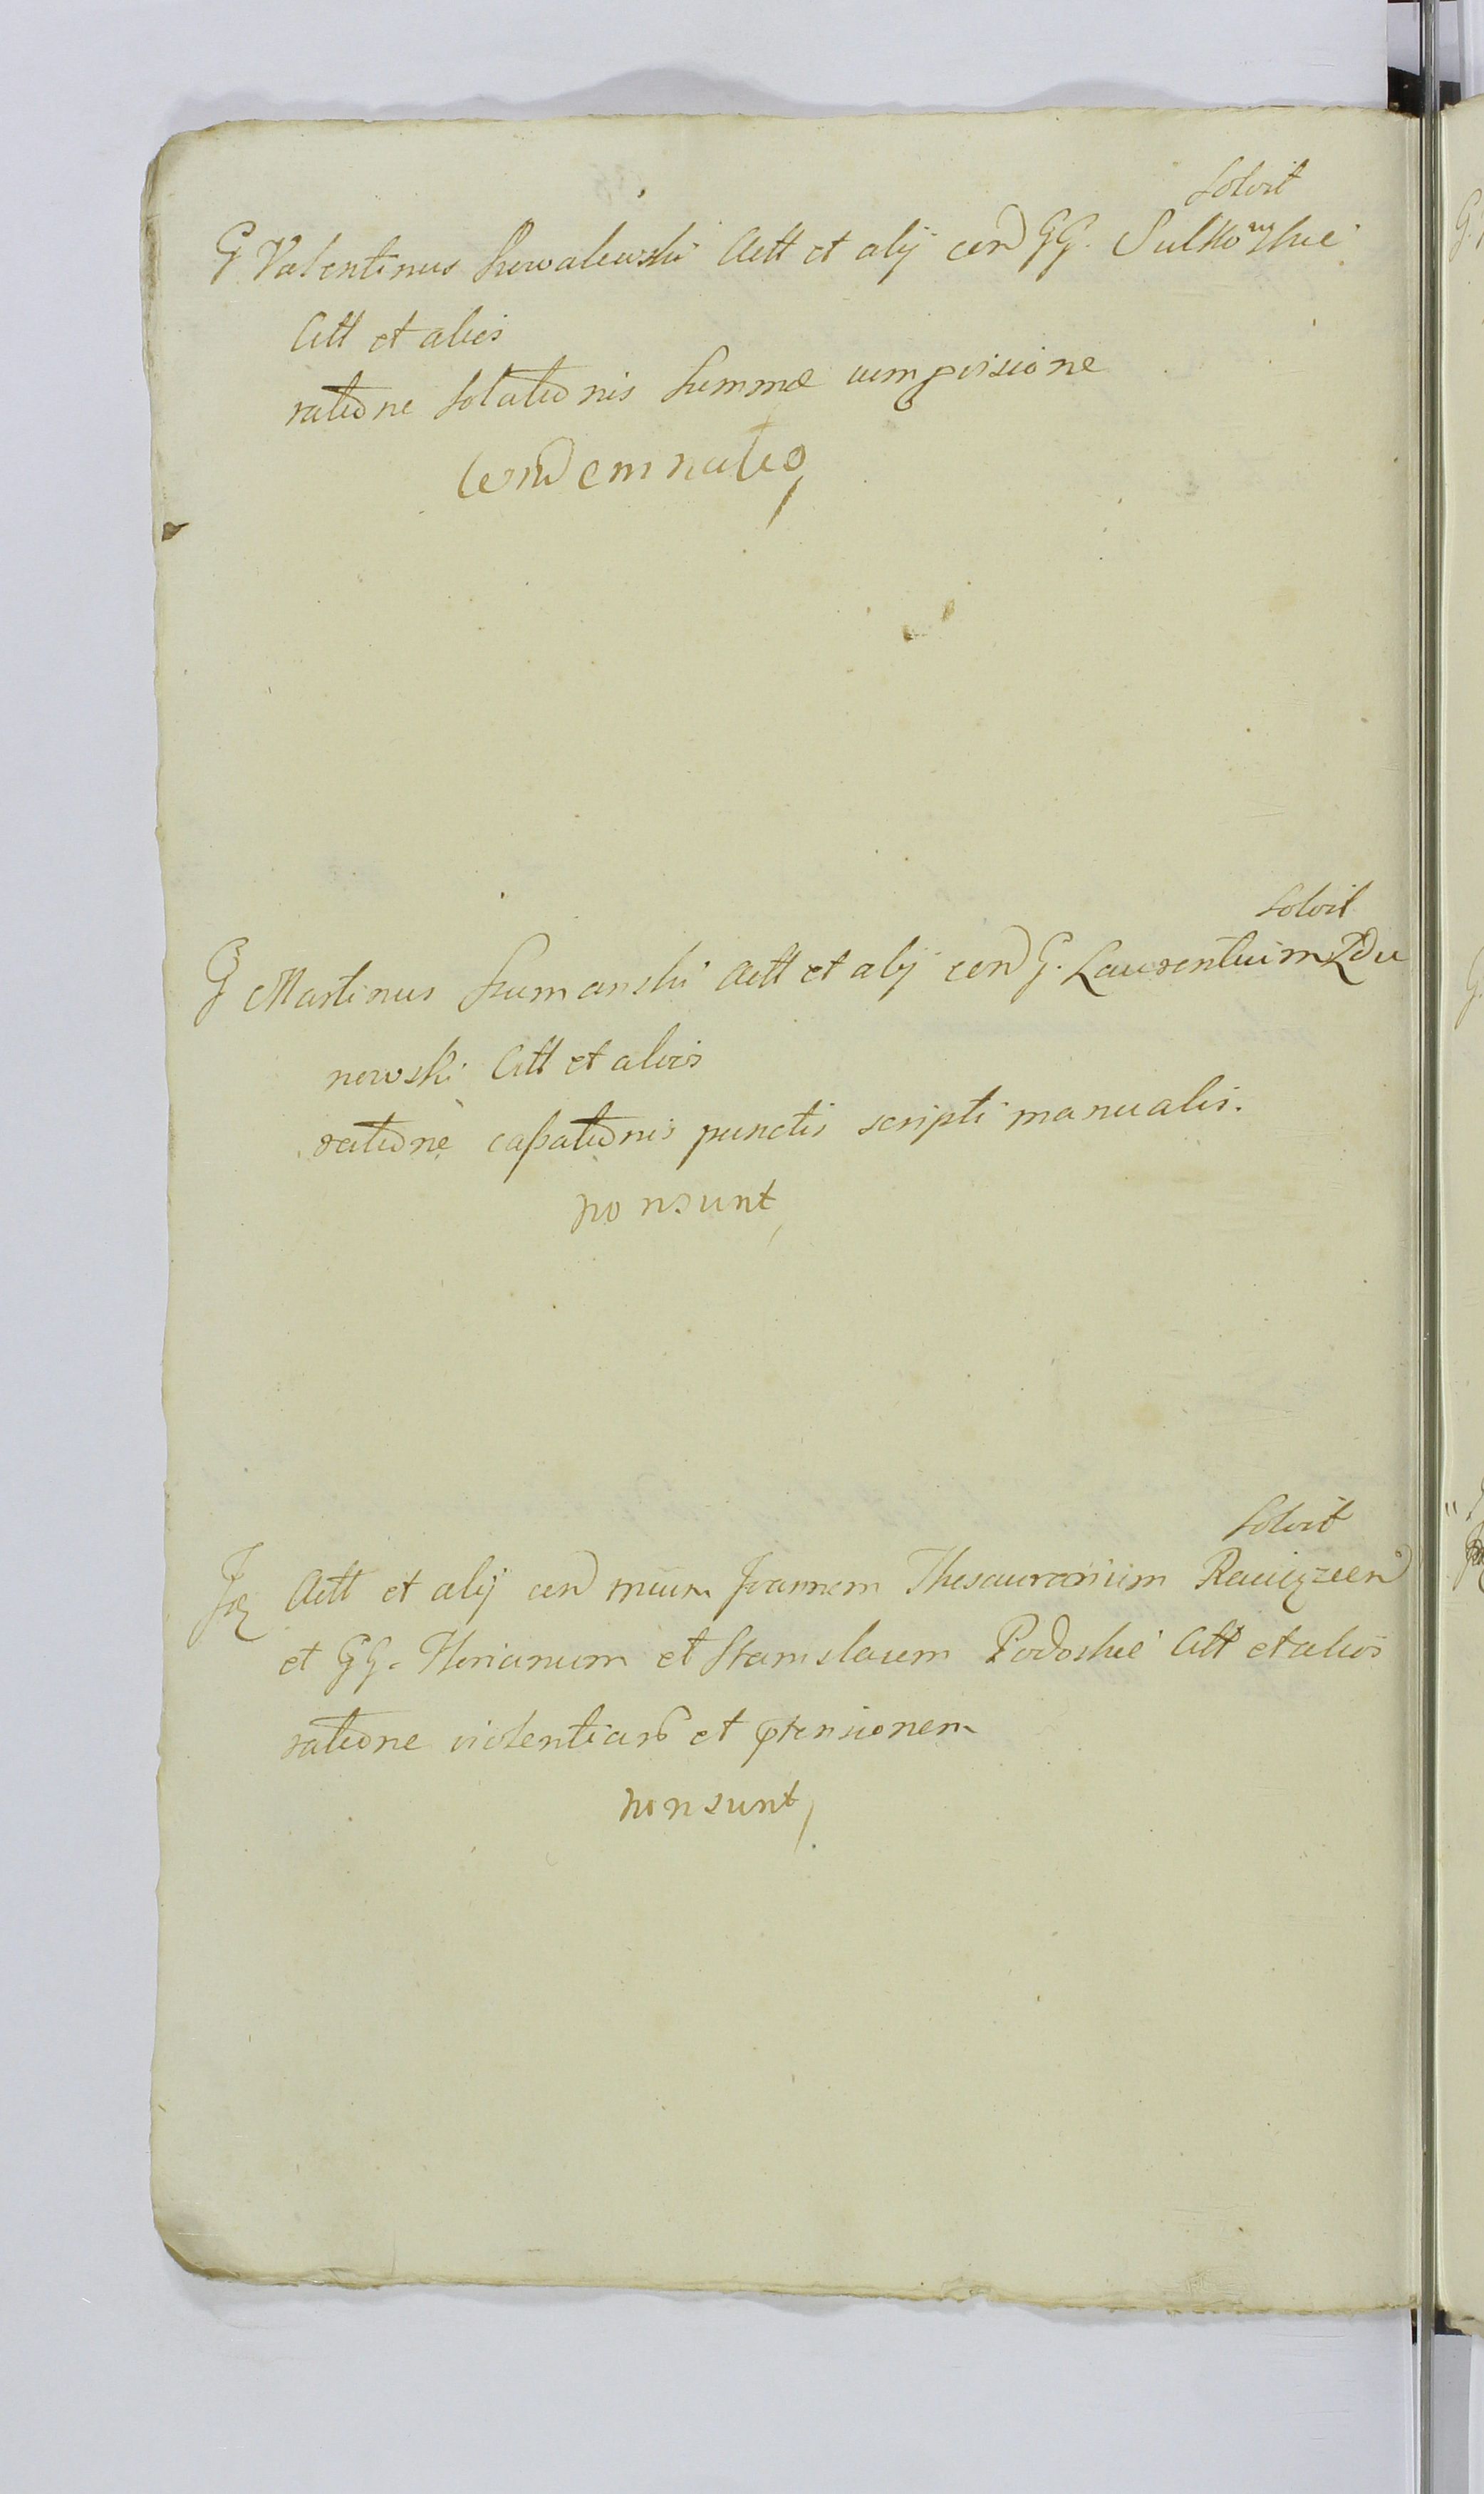 Solvit
G Valentinus Kowalewski Actt et alij con GG. Sulkowskie
Citt et alios
ratione solutionis summæ cum provisione
Condemnatio
Solvit
G Martinus Szumanski Actt et alij con G. Laurentium Zdu
nowski Citt et alios
ratione cassationis punctis scripti manualis.
non sunt
Solvit
Actt et alij con mcum Joannem Thesaurarium
et GG. Florianum et Stanislaum Podoskie Citt et alios
ratione violentiarum et prtensionem
non sunt